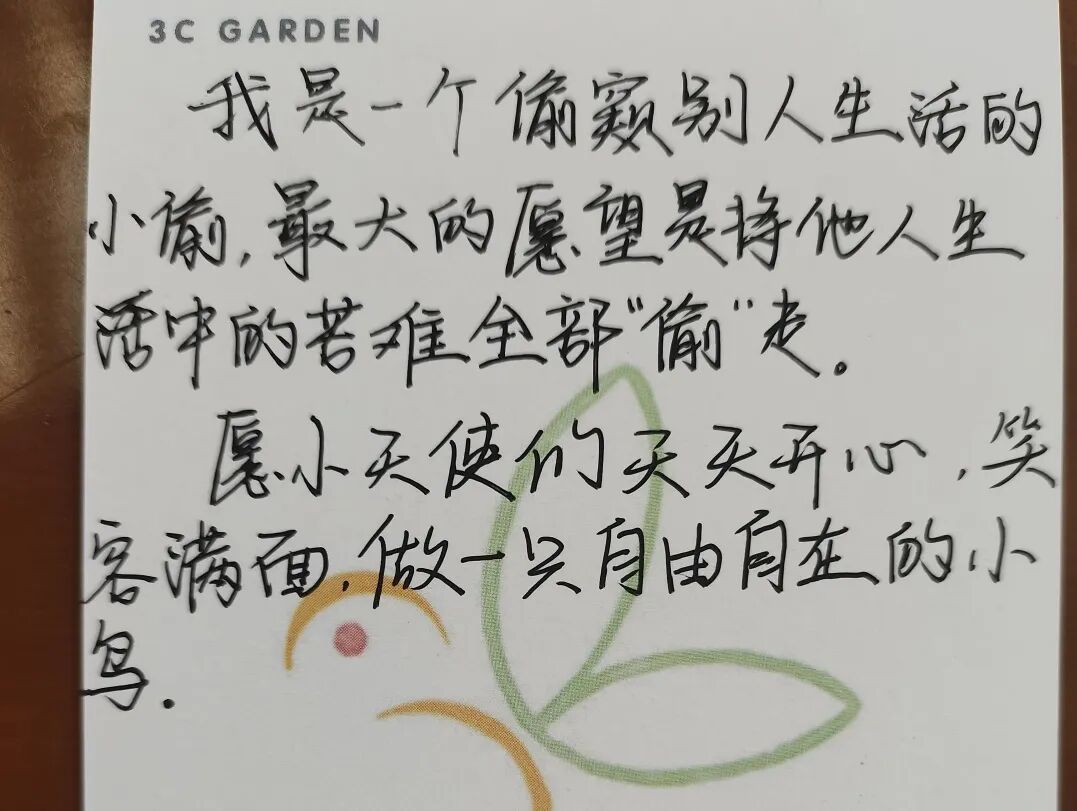 3C GARDEN
我是一个偷窥别人生活的
小偷,最大的愿望是将他人生
活中的苦难全部“偷”走。
愿小天使们天天开心,笑
容满面,做一只自由自在的小
鸟.